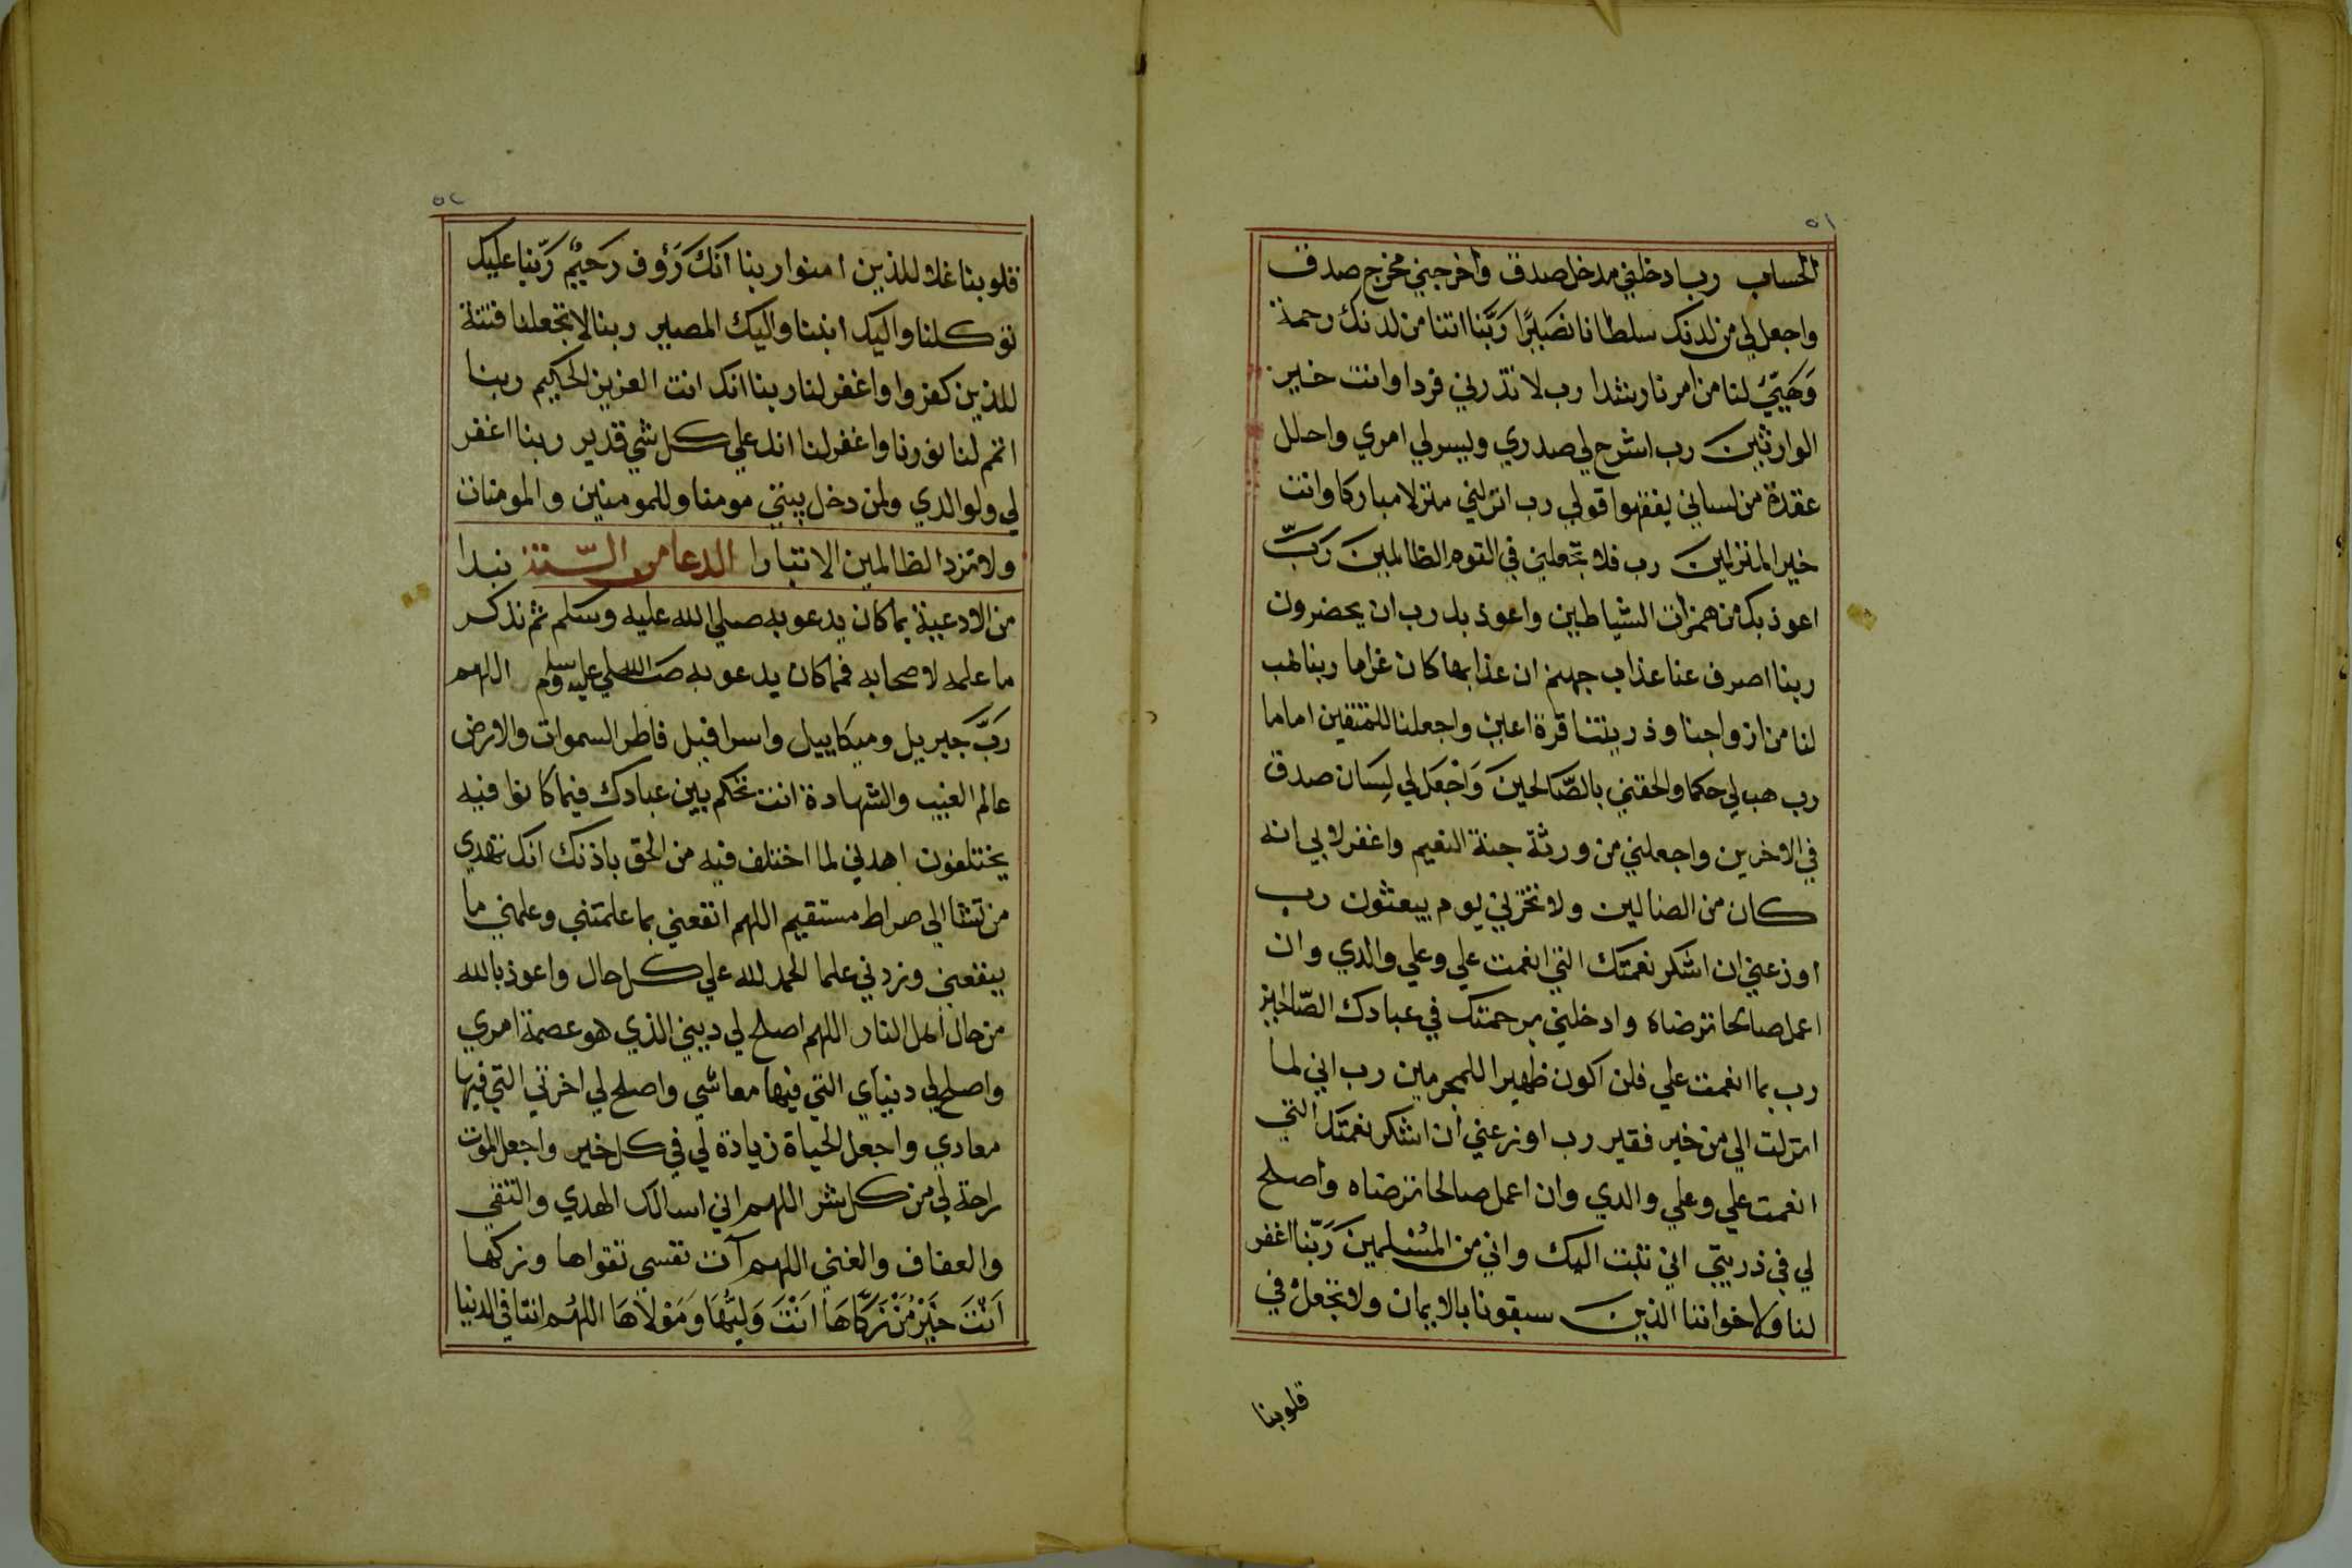 ٥١
الحساب رب ادخلني مدخل صدق واخرجني مخرج صدق
واجعل لي من لدنك سلطانا نصيرًا رَبَّنا اتنا من لدنك رحمة
وَهَيِّئ لنا من امرنا رشدا رب لا تذرني فردا وانت خير
الوارثين رب اشرح لي صدري ويسر لي امري واحلل
عقدة من لساني يفقهوا قولي رب انزلني منزلا مباركا وانت
خير المنزلين رب فلا تجعلني في القوم الظالمين رَبِّ
اعوذ بك من همزات الشياطين واعوذ بك رب ان يحضرون
ربنا اصرف عنا عذاب جهنم ان عذابها كان غراما ربنا هب
لنا من ازواجنا وذريتنا قرة اعين واجعلنا للمتقين اماما
رب هب لي حكما والحقني بالصَّالحينَ وَاجْعَل لي لِسَان صدق
في الاخرين واجعلني من ورثة جنة النعيم واغفر لابي انه
كان من الضالين ولا تخزني يوم يبعثون رب
اوزعني ان اشكر نعمتك التي انعمت علي وعلي والدي وان
اعمل صالحا ترضاه وادخلني برحمتك في عبادك الصّالحين
رب بما انعمت علي فلن اكون ظهيرا للمجرمين رب اني لما
انزلت الي من خير فقير رب اوزعني ان اشكر نعمتك التي
انعمت علي وعلي والدي وان اعمل صالحا ترضاه واصلح
لي في ذريتي اني تبت اليك واني من المُسْلمينَ رَبَّنا اغفر
لنا ولاخواننا الذين سبقونا بالايمان ولا تجعل في
قلوبنا
٥٢
قلوبنا غلا للذين امنوا ربنا انكَ رَؤف رَحيمٌ رَبّنا عليك
توكلنا واليك انبنا واليك المصير ربنا لا تجعلنا فتنة
للذين كفروا واغفر لنا ربنا انك انت العزيز الحكيم ربنا
اتمم لنا نورنا واغفر لنا انك علي كل شي قدير ربنا اغفر
لي ولوالدي ولمن دخل بيتي مومنا وللمومنين والمومنات
ولا تزد الظالمين الا تبارا الدعا من السّنة نبدا
من الادعية بما كان يدعو به صلي الله عليه وسَلم ثم نذكر
ما علمه لاصحابه فمما كان يدعو به صَلي الله عليه وسلم اللهم
رَبَّ جَبريل وميكاييل واسرافيل فاطر السموات والارض
عالم الغيب والشهادة انت تحكم بين عبادك فيما كانوا فيه
يختلفون اهدني لما اختلف فيه من الحق باذنك انك تهدي
من تشا الي صراط مستقيم اللهم انفعني بما علمتني وعلمني ما
ينفعني وزدني علما الحمد لله علي كل حال واعوذ بالله
من حال اهل النار اللهم اصلح لي ديني الذي هو عصمة امري
واصلح لي دنياي التي فيها معاشي واصلح لي اخرتي التي فيها
معادي واجعل الحياة زيادة لي في كل خير واجعل الموت
راحة لي من كل شر اللهم اني اسالك الهدي والتقي
والعفاف والغني اللهم آت نفسي تقواها وزكها
اَنْتَ خَيْرُ مَنْ زَكَّاهَا اَنْتَ وَليُّهَا وَمَوْلَاهَا اللهُم اتنا في الدنيا